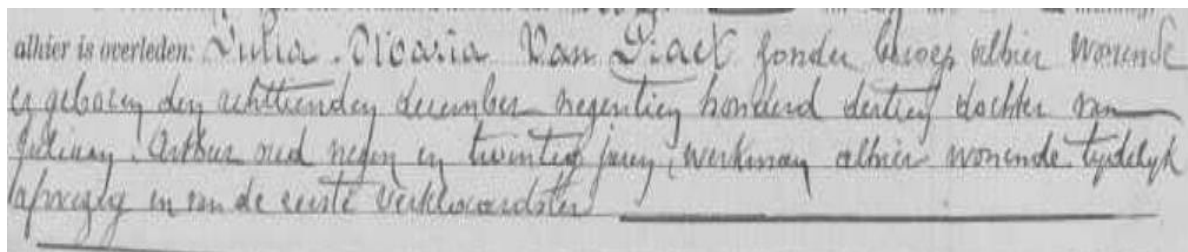 alhier is overleden: Julia Maria Van Diack zonder beroep alhier wonende
en geboren den achttienden december negentien honderd dertien dochter van
Julien Arthur oud negen en twintig jaren, werkman alhier wonende tydelyk
afwezig en van de eerste verklaardster